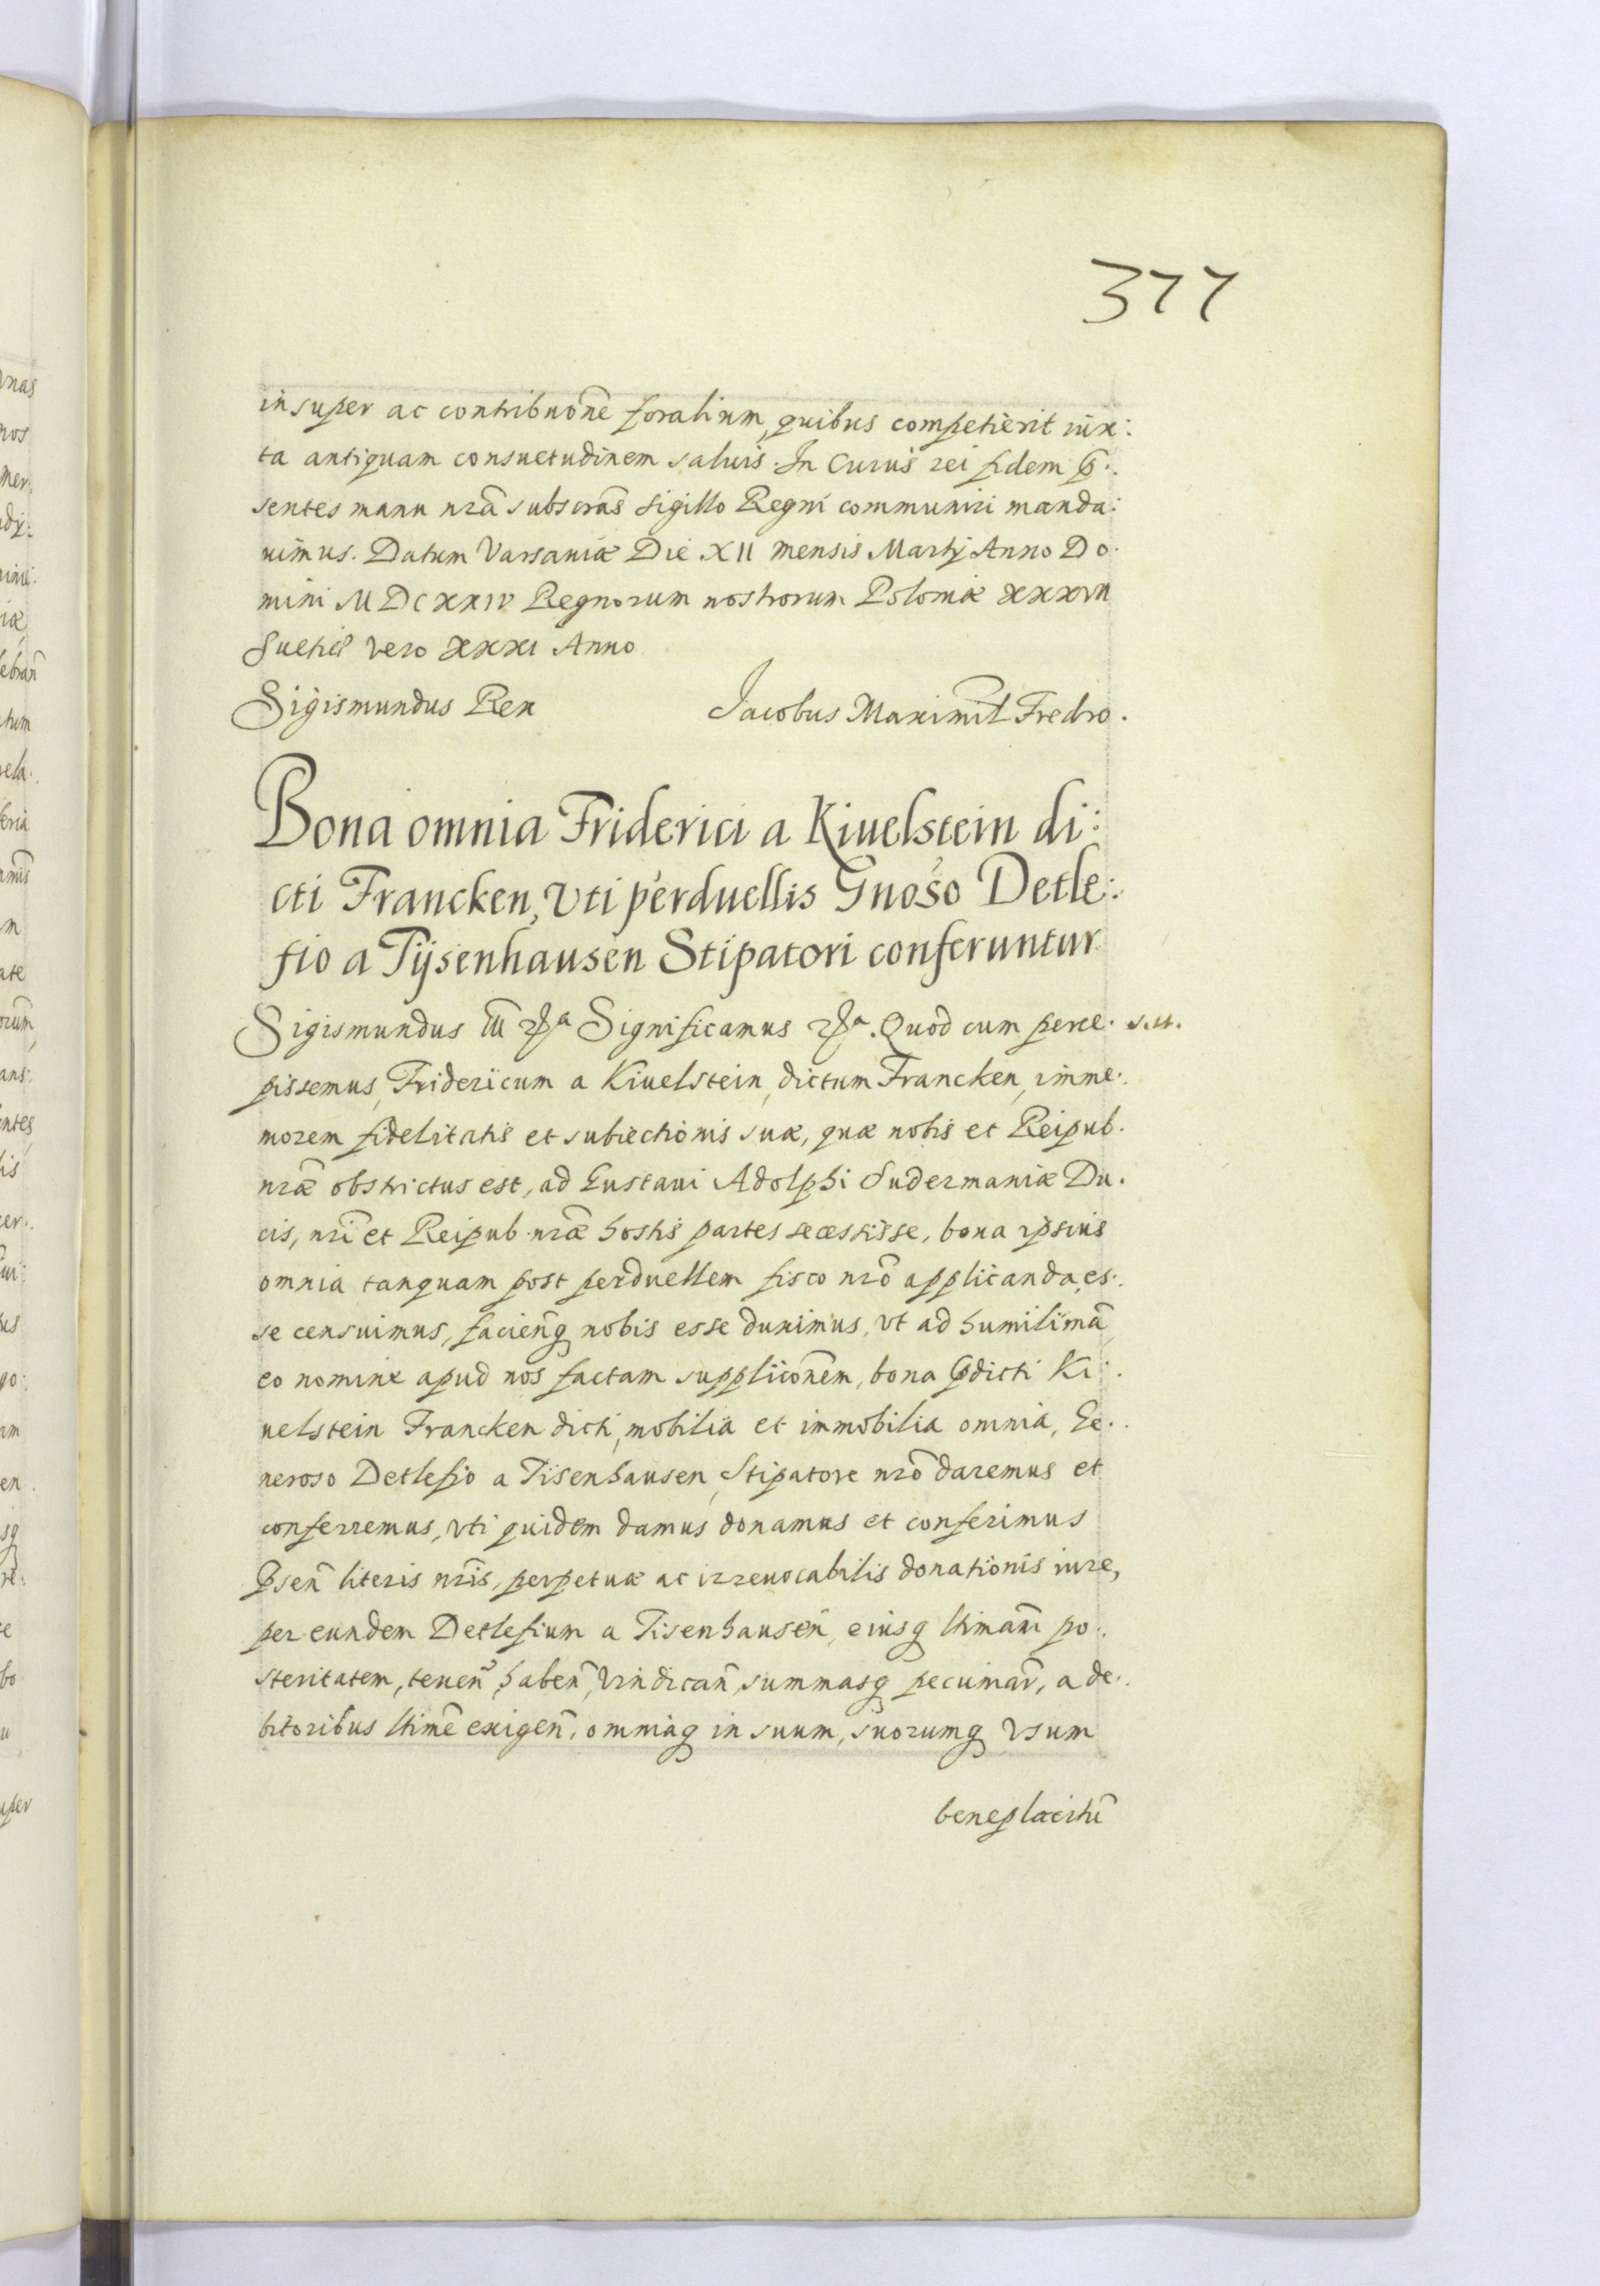 377
insuper ac contribuõne foralium, quibus competierit iux:
ta antiquam consuetudinem saluis. In Cuius rei fidem p̃:
sentes manu nrã subscrãs Sigillo Regni communiri manda:
uimus. Datum Varsauiæ Die XII mensis Martij Anno Do:
mini MDCXXIV Regnorum nostrorum Poloniæ XXXVII
Suetiæ vero XXXI Anno
Sigismundus Rex Jacobus Maximil̃ Fredro.
Bona omnia Friderici a Kiuelstein di:
cti Francken, Vti perduellis Gnoso Detle:
fio a Tijsenhausen Stipatori conferuntur
Sigismundus III Significamus Quod cum perce:
pissemus, Fridericum a Kiuelstein, dictum Francken, imme:
morem fidelitatis et subiectionis suæ, quæ nobis et Reipub.
nræ̃ obstrictus est, ad Gustaui Adolphi Sudermaniæ Du:
cis, nrĩ et Reipub. nræ̃ hostis partes secessisse, bona ipsius
omnia tanquam post perduellem fisco nrõ applicanda es:
se censuimus, facienq̃ nobis esse duximus, vt ad humilimã
eo nomine apud nos factam supplicõnem, bona p̃dicti Ki:
uelstein Francken dicti, mobilia et immobilia omnia, Ge:
neroso Detlefio a Tisenhausen, Stipatore nrõ daremus et
conferremus, vti quidem damus donamus et conferimus
p̃sen̄ literis nrĩs, perpetuæ ac irreuocabilis donationis iure,
per eundem Detlefium a Tisenhausen, eiusq̃ ltimam̃ po:
steritatem, tenen̄, haben̄, vindican̄, summasq̃ pecuniar̃, a de:
bitoribus ltimẽ exigen̄, omniaq̃ in suum, suorumq̃ vsum
beneplacitũ